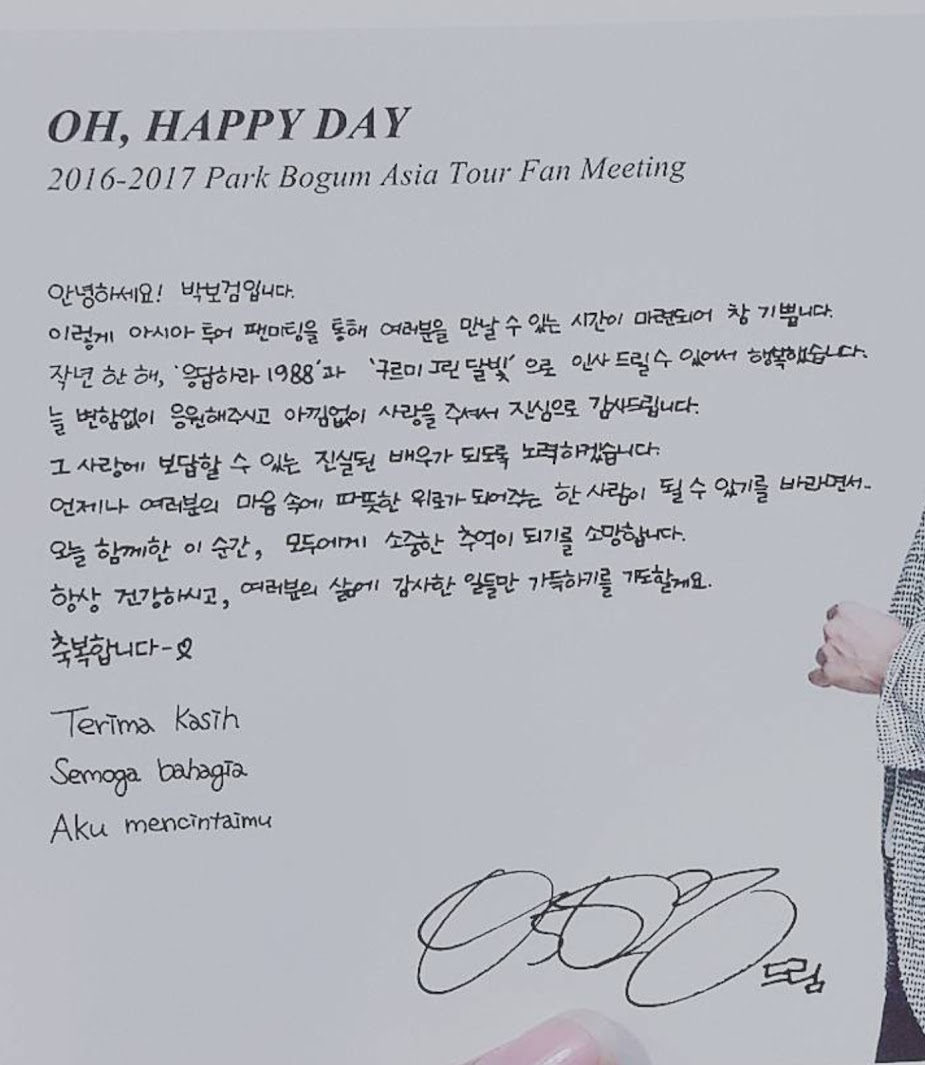 OH, HAPPY DAY
2016-2017 Park Bogum Asia Tour Fan Meeting
안녕하세요! 박보검입니다.
이렇게 아시아 투어 팬미팅을 통해 여러분을 만날 수 있는 시간이 마련되어 참 기쁩니다.
작년 한 해, '응답하라 1988'과 '구르미 그린 달빛'으로 인사 드릴 수 있어서 행복했습니다.
늘 변함없이 응원해주시고 아낌없이 사랑을 주셔서 진심으로 감사드립니다.
그 사랑에 보답할 수 있는 진실된 배우가 되도록 노력하겠습니다.
언제나 여러분의 마음 속에 따뜻한 위로가 되어주는 한 사람이 될 수 있기를 바라면서..
오늘 함께한 이 순간, 모두에게 소중한 추억이 되기를 소망합니다.
항상 건강하시고, 여러분의 삶에 감사한 일들만 가득하기를 기도할게요.
축복합니다-
Terima kasih
Semoga bahagia
Aku mencintaimu
드림